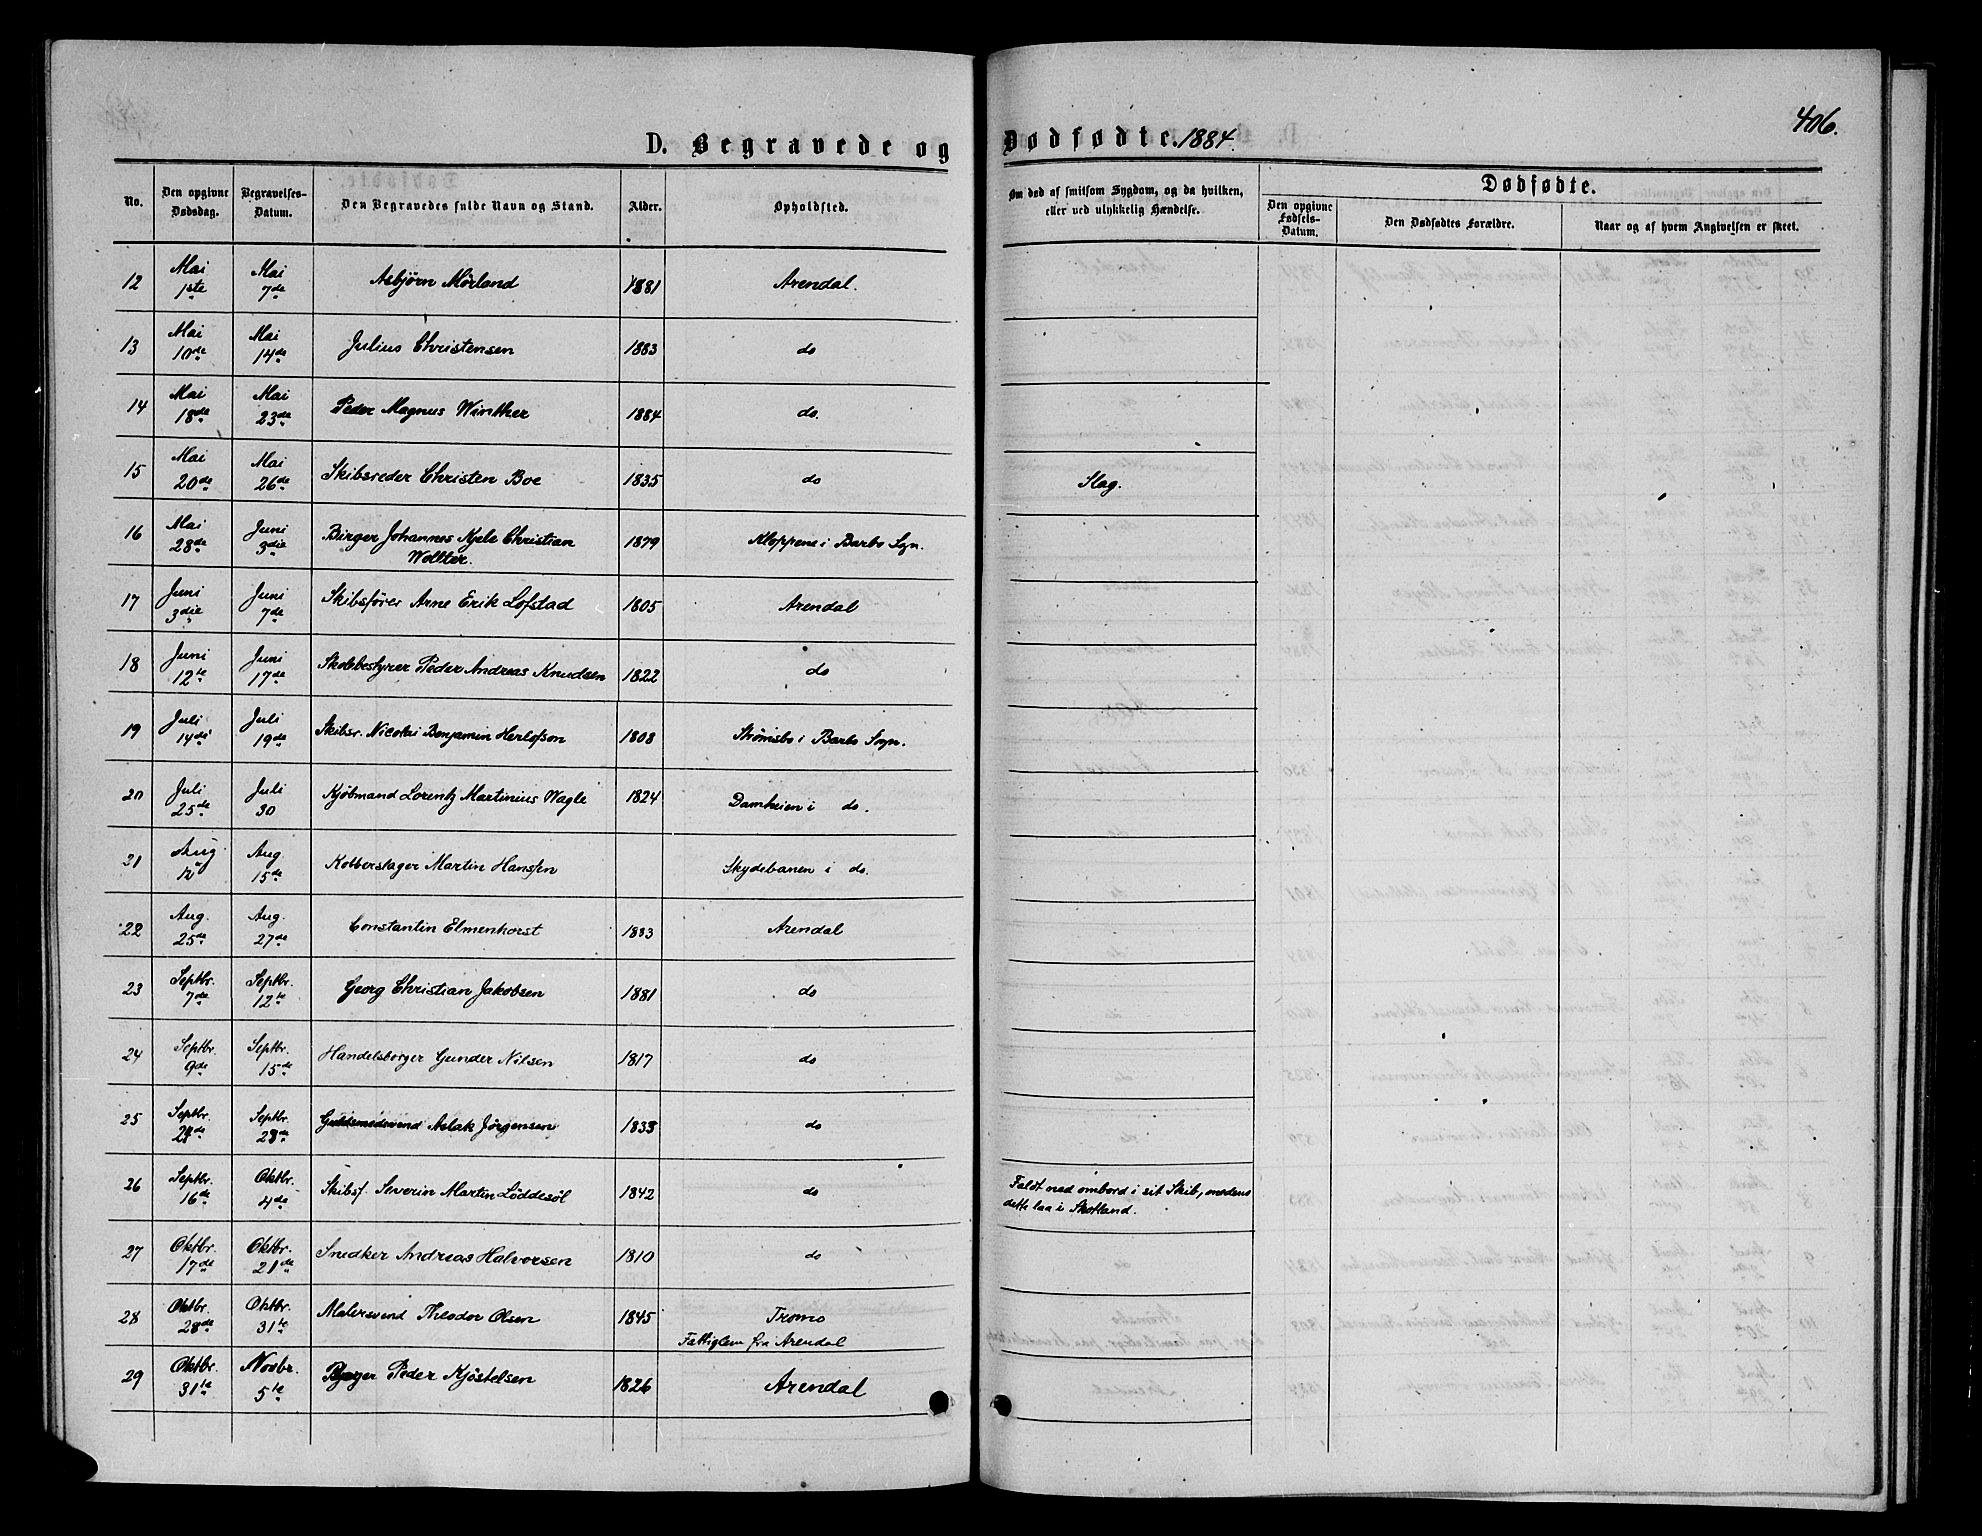 406.
D. Begravede og Dødfødte. 1884.
No. | Den opgivne Dødsdag. | Begravelses-Datum. | Den Begravedes fulde Navn og Stand. | Alder. | Opholdsted. | Om død af smitsom Sygdom, og da hvilken, eller ved ulykkelig Hændelse. | Dødfødte.
Den opgivne Fødsels-Datum. | Den Dødfødtes Forældre. | Naar og af hvem Angivelsen er skeet.
12 | Mai 1ste | Mai 7de | Asbjørn Mørland | 1881 | Arendal.
13 | Mai 10de | Mai 14de | Julius Christensen | 1883 | do
14 | Mai 18de | Mai 23de | Peder Magnus Winther | 1884 | do.
15 | Mai 20de | Mai 26de | Skibsreder Christen Boe | 1835 | do | Slag.
16 | Mai 28de | Juni 3die | Birger Johannes Kjele Christian Woltter. | 1879 | Kloppene i Barbo Sogn.
17 | Juni 3die | Juni 7de | Skibsfører Arne Erik Lofstad | 1805 | Arendal
18 | Juni 12te | Juni 17de | Skolebestyrer Peder Andreas Knudsen | 1822 | do
19 | Juli 14de | Juli 19de | Skibsr. Nicolai Benjamin Herlofson | 1808 | Strømsbo i Barbo Sogn.
20 | Juli 25de | Juli 30 | Kjøbmand Lorentz Martinius Wagle | 1824 | Damheien i do.
21 | Aug. 12 | Aug. 15de | Kobberslager Martin Hanssen | Skydebanen i do.
22 | Aug. 25de | Aug. 27de | Constantin Elmenhorst | 1883 | Arendal
23 | Septbr. 7de | Septbr. 12te | Georg Christian Jakobsen | 1881 | do
24 | Septbr. 9de | Septbr. 15de | Handelsborger Gunder Nilsen | 1817 | do
25 | Septbr. 24de | Septbr. 28de | Guldsmedsvend Aslak Jørgensen | 1833 | do
26 | Septbr. 16de | Oktbr. 4de | Skibsf. Severin Martin Løddesøl | 1842 | do | Faldt ned ombord i sit Skib, medens dette laa i Skotland.
27 | Oktbr. 17de | Oktbr. 21de | Snedker Andreas Halvorsen | 1810 | do
28 | Oktbr. 28de | Oktbr. 31te | Malersvend Theodor Olsen | 1845 | Tromø Fattiglem fra Arendal
29 | Oktbr. 31te | Novbr. 5te | Peder Kjøstelsen | 1826 | Arendal